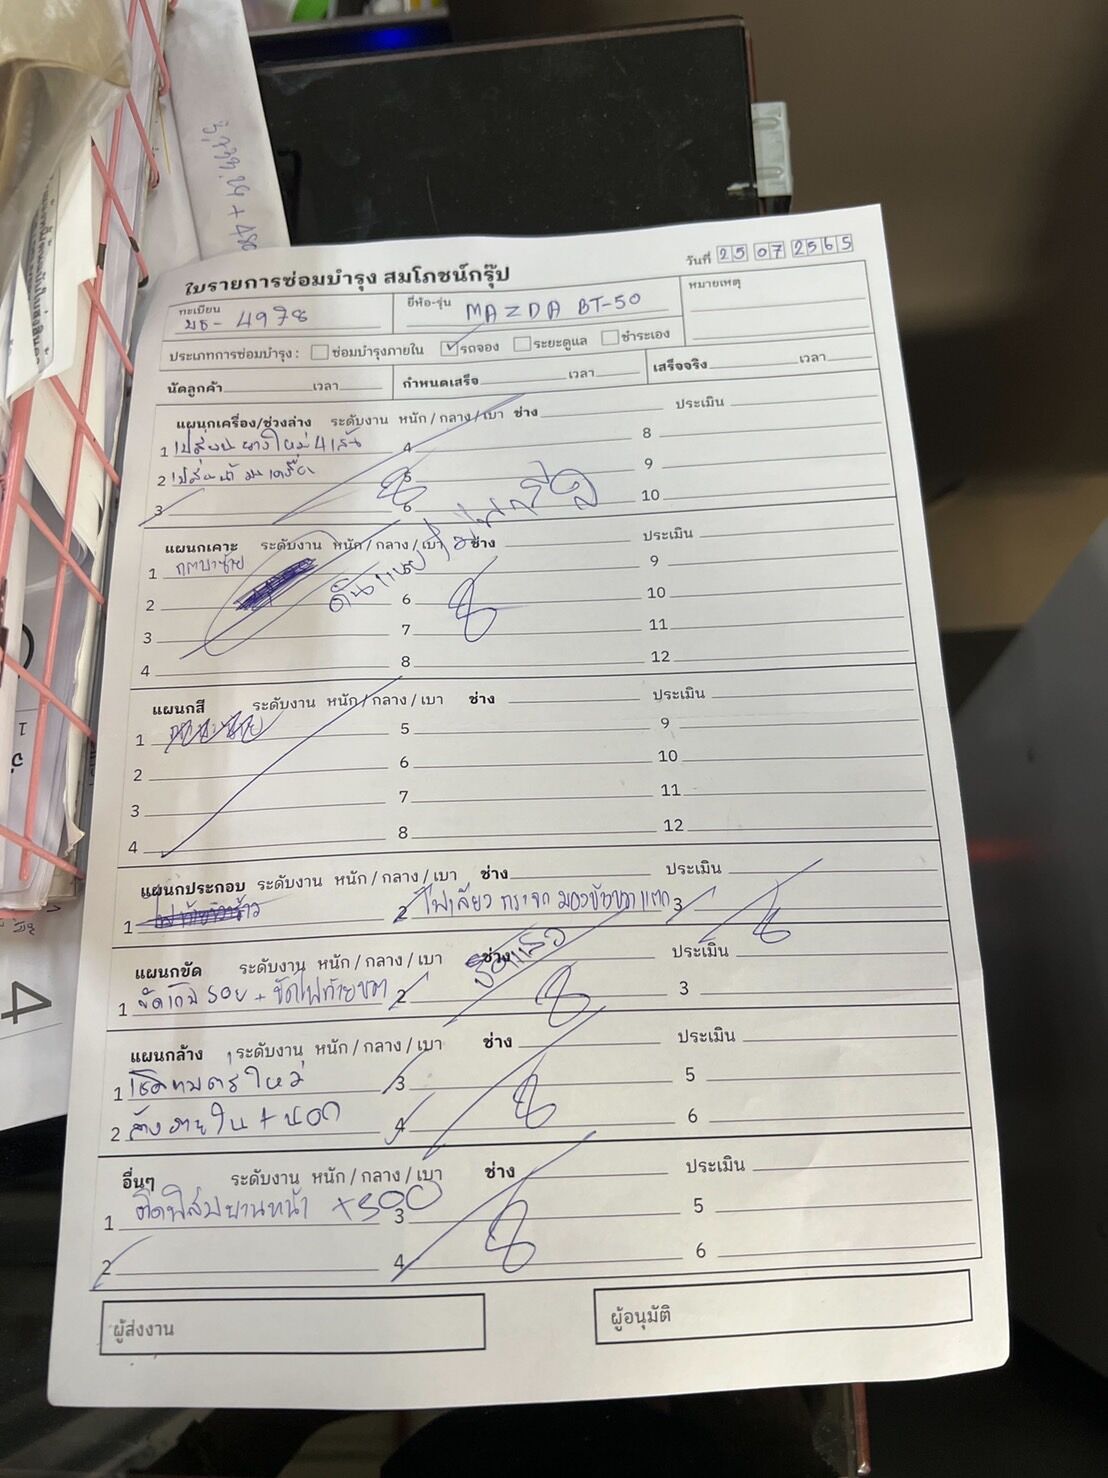 วันที่ 25 07 2565
ใบรายการซ่อมบำรุง สมโภชน์กรุ๊ป
ทะเบียน บธ - 4978 ยี่ห้อ-รุ่น MAZDA BT-50 หมายเหตุ
ประเภทการซ่อมบำรุง : ซ่อมบำรุงภายใน ✓ รถจอง ระยะดูแล ชำระเอง
นัดลูกค้า เวลา กำหนดเสร็จ เวลา เสร็จจริง เวลา
แผนกเครื่อง/ช่วงล่าง ระดับงาน หนัก / กลาง / เบา ช่าง ประเมิน
1 เปลี่ยนยางใหม่ 4 เส้น 4 8
2 เปลี่ยนน้ำมันเครื่อง 5 9
3 6 10
แผนกเคาะ ระดับงาน หนัก / กลาง / เบา ช่าง ประเมิน
1 9
2 6 10
3 7 11
4 8 12
แผนกสี ระดับงาน หนัก / กลาง / เบา ช่าง ประเมิน
1 5 9
2 6 10
3 7 11
4 8 12
แผนกประกอบ ระดับงาน หนัก / กลาง / เบา ช่าง ประเมิน
1 2 ไฟเลี้ยว กระจก มองข้างขวา แตก 3
แผนกขัด ระดับงาน หนัก / กลาง / เบา ช่าง ประเมิน
1 ขัดเก็บรอย + ขัดไฟท้ายขวา 2 3
แผนกล้าง ระดับงาน หนัก / กลาง / เบา ช่าง ประเมิน
1 3 5
2 ล้างภายใน + นอก 4 6
อื่นๆ ระดับงาน หนัก / กลาง / เบา ช่าง ประเมิน
1 ติดฟิล์มบานหน้า +500 3 5
2 4 6
ผู้ส่งงาน ผู้อนุมัติ